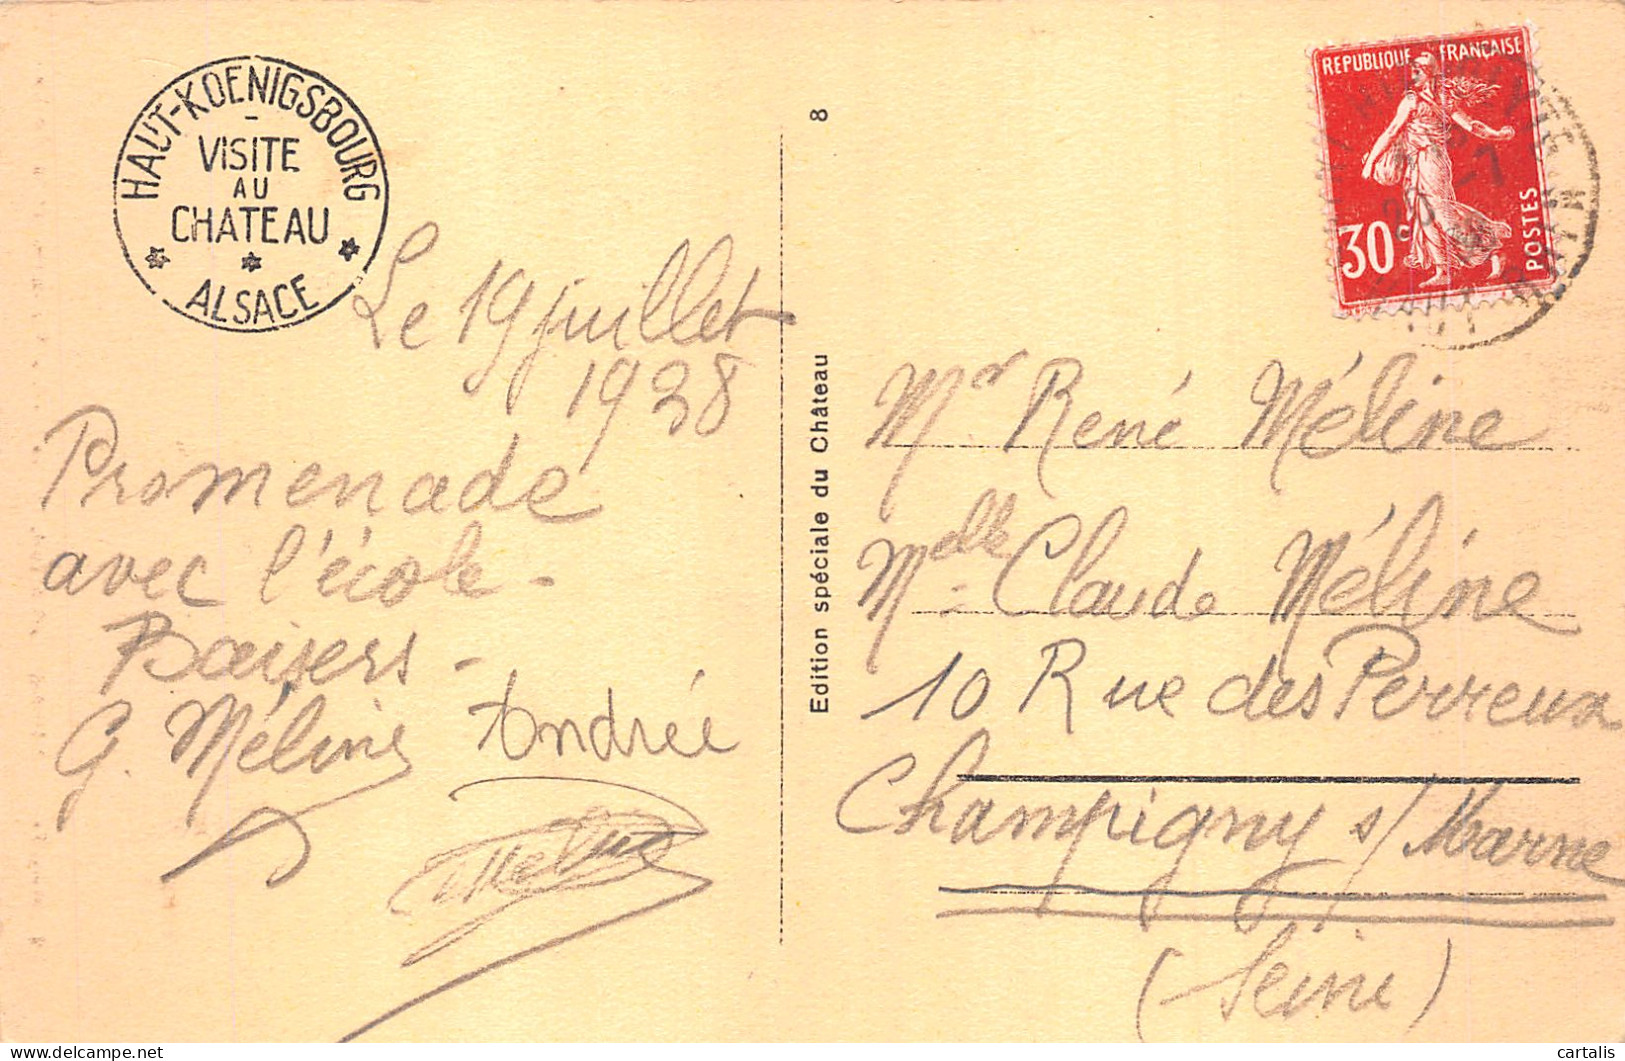 HAUT-KOENIGSBOURG
VISITE
AU
CHATEAU
ALSACE
Le 19 juillet
1938
Promenade
avec l'école -
Baisers -
G. Méline Andrée
Edition spéciale du Château
8
REPUBLIQUE FRANÇAISE
30c
POSTES
Mr René Méline
Melle Claude Méline
10 Rue des Perreux
Champigny s/ Marne
(Seine)
cartalis